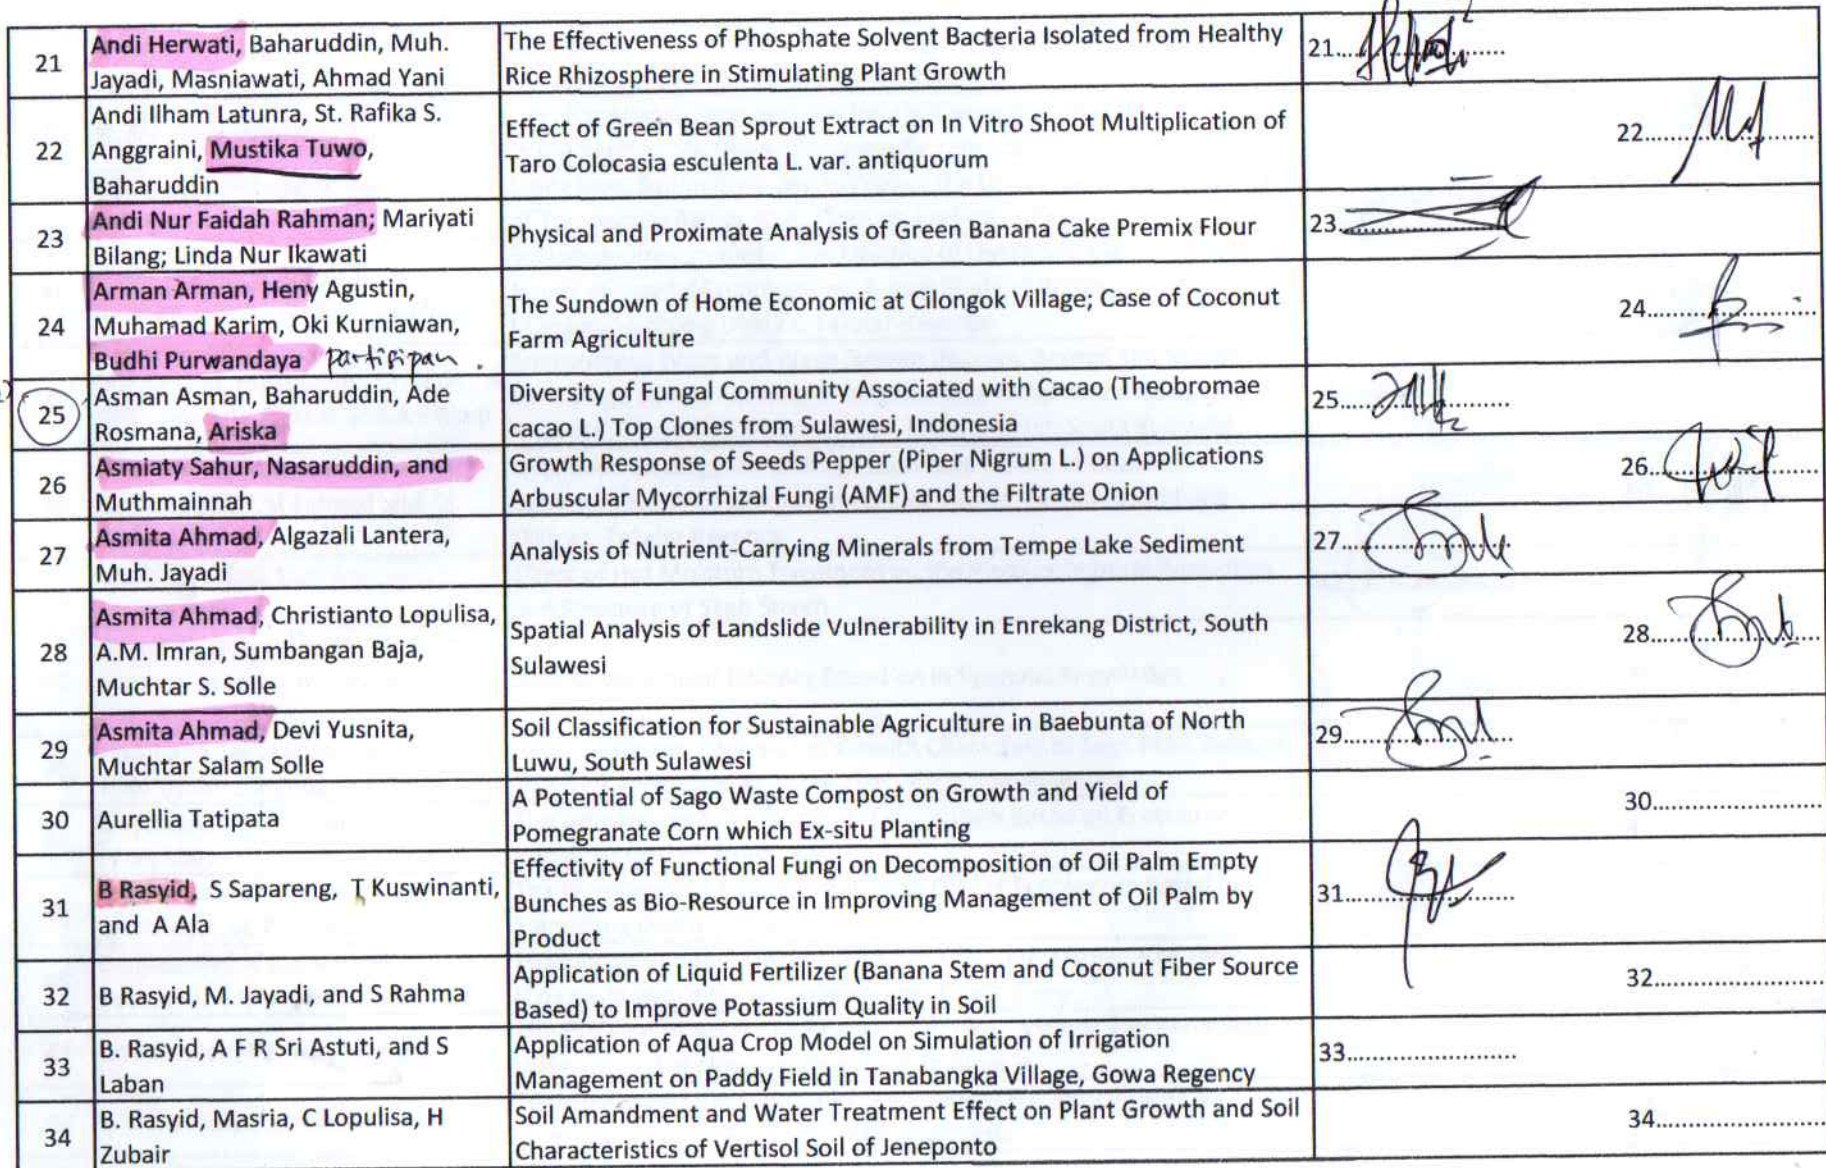 21
Andi Herwati, Baharuddin, Muh.
Jayadi, Masniawati, Ahmad Yani
The Effectiveness of Phosphate Solvent Bacteria Isolated from Healthy
Rice Rhizosphere in Stimulating Plant Growth
21
22
Andi Ilham Latunra, St. Rafika S.
Anggraini, Mustika Tuwo,
Baharuddin
Effect of Green Bean Sprout Extract on In Vitro Shoot Multiplication of
Taro Colocasia esculenta L. var. antiquorum
22
23
Andi Nur Faidah Rahman; Mariyati
Bilang; Linda Nur Ikawati
Physical and Proximate Analysis of Green Banana Cake Premix Flour
23
24
Arman Arman, Heny Agustin,
Muhamad Karim, Oki Kurniawan,
Budhi Purwandaya partisipan.
The Sundown of Home Economic at Cilongok Village; Case of Coconut
Farm Agriculture
24
25
Asman Asman, Baharuddin, Ade
Rosmana, Ariska
Diversity of Fungal Community Associated with Cacao (Theobromae
cacao L.) Top Clones from Sulawesi, Indonesia
25
26
Asmiaty Sahur, Nasaruddin, and
Muthmainnah
Growth Response of Seeds Pepper (Piper Nigrum L.) on Applications
Arbuscular Mycorrhizal Fungi (AMF) and the Filtrate Onion
26
27
Asmita Ahmad, Algazali Lantera,
Muh. Jayadi
Analysis of Nutrient-Carrying Minerals from Tempe Lake Sediment
27
28
Asmita Ahmad, Christianto Lopulisa,
A.M. Imran, Sumbangan Baja,
Muchtar S. Solle
Spatial Analysis of Landslide Vulnerability in Enrekang District, South
Sulawesi
28
29
Asmita Ahmad, Devi Yusnita,
Muchtar Salam Solle
Soil Classification for Sustainable Agriculture in Baebunta of North
Luwu, South Sulawesi
29
30
Aurellia Tatipata
A Potential of Sago Waste Compost on Growth and Yield of
Pomegranate Corn which Ex-situ Planting
30
31
B Rasyid, S Sapareng, T Kuswinanti,
and A Ala
Effectivity of Functional Fungi on Decomposition of Oil Palm Empty
Bunches as Bio-Resource in Improving Management of Oil Palm by
Product
31
32
B Rasyid, M. Jayadi, and S Rahma
Application of Liquid Fertilizer (Banana Stem and Coconut Fiber Source
Based) to Improve Potassium Quality in Soil
32
33
B. Rasyid, A F R Sri Astuti, and S
Laban
Application of Aqua Crop Model on Simulation of Irrigation
Management on Paddy Field in Tanabangka Village, Gowa Regency
33
34
B. Rasyid, Masria, C Lopulisa, H
Zubair
Soil Amandment and Water Treatment Effect on Plant Growth and Soil
Characteristics of Vertisol Soil of Jeneponto
34